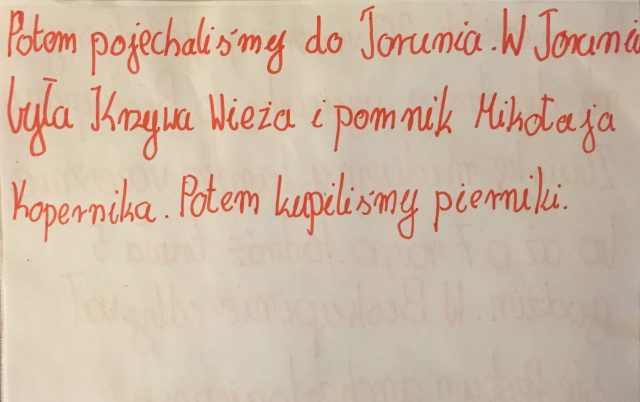 Potem pojechaliśmy do Torunia. W Toruniu
była Krzywa Wieża i pomnik Mikołaja
Kopernika. Potem kupiliśmy pierniki.